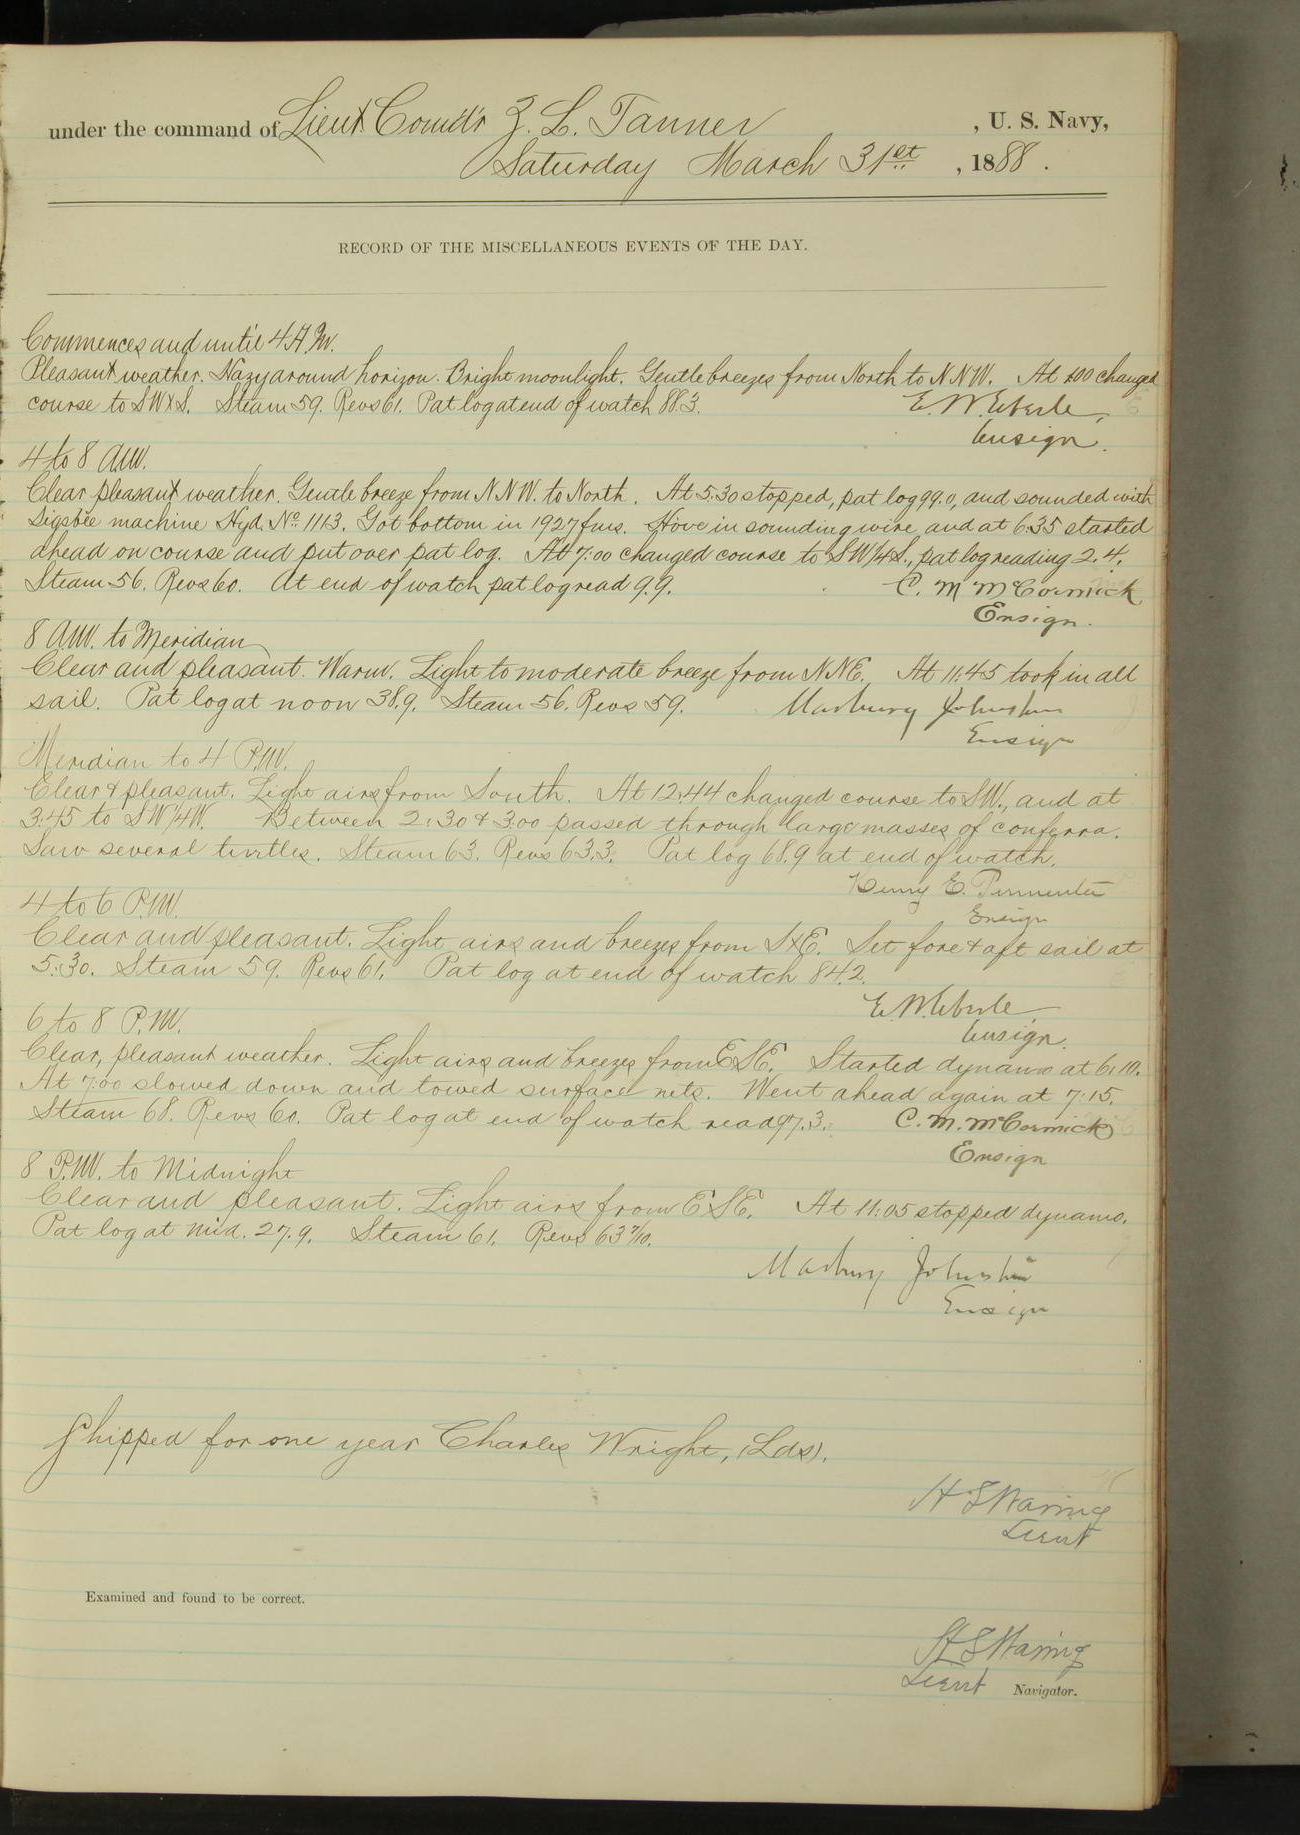 under the command of Lieut Comd'r Z. L. Tanner, U. S. Navy,
Saturday March 31st, 1888.
RECORD OF THE MISCELLANEOUS EVENTS OF THE DAY.
Commences and until 4 A.M.
Pleasant weather. Hazy around horizon. Bright moonlight. Gentle breezes from North to NNW. At 1:00 changed
course to SWxS. Steam 59. Revs 61. Pat log at end of watch 88.3. E. W. Eberle,
Ensign.
4 to 8 A.M.
Clear pleasant weather. Gentle breeze from NNW. to North. At 5:30 stopped, pat log 99.0, and sounded with
Sigsbee machine Hyd. No. 1113. Got bottom in 1927 fms. Hove in sounding wire and at 6:35 started
ahead on course and put over pat log. At 7:00 changed course to SW1/4S., pat log reading 2.4.
Steam 56. Revs 60. At end of watch pat log read 9.9. C. M. McCormick
Ensign.
8 A.M. to Meridian
Clear and pleasant. Warm. Light to moderate breeze from NNE. At 11:45 took in all
sail. Pat log at noon 38.9. Steam 56. Revs 59. Marbury Johnston
Ensign
Meridian to 4 P.M.
Clear & pleasant. Light airs from South. At 12:44 changed course to SW., and at
3:45 to SW1/4W. Between 2:30 & 3:00 passed through large masses of conferra.
Saw several turtles. Steam 63. Revs 63.3. Pat log 68.9 at end of watch.
Henry E. Parmenter
Ensign
4 to 6 P.M.
Clear and pleasant. Light airs and breezes from SxE. Set fore & aft sail at
5:30. Steam 59. Revs 61. Pat log at end of watch 84.2.
E. W. Eberle,
Ensign.
6 to 8 P.M.
Clear, pleasant weather. Light airs and breezes from ESE. Started dynamo at 6:10.
At 7:00 slowed down and towed surface nets. Went ahead again at 7:15.
Steam 68. Revs 60. Pat log at end of watch read 97.3. C. M. McCormick
Ensign
8 P.M. to Midnight
Clear and pleasant. Light airs from ESE. At 11:05 stopped dynamo.
Pat log at mid. 27.9. Steam 61. Revs 63 7/10.
Marbury Johnston
Ensign
Shipped for one year Charles Wright, (Lds).
H S Waring
Lieut
Examined and found to be correct.
H S Waring
Lieut Navigator.